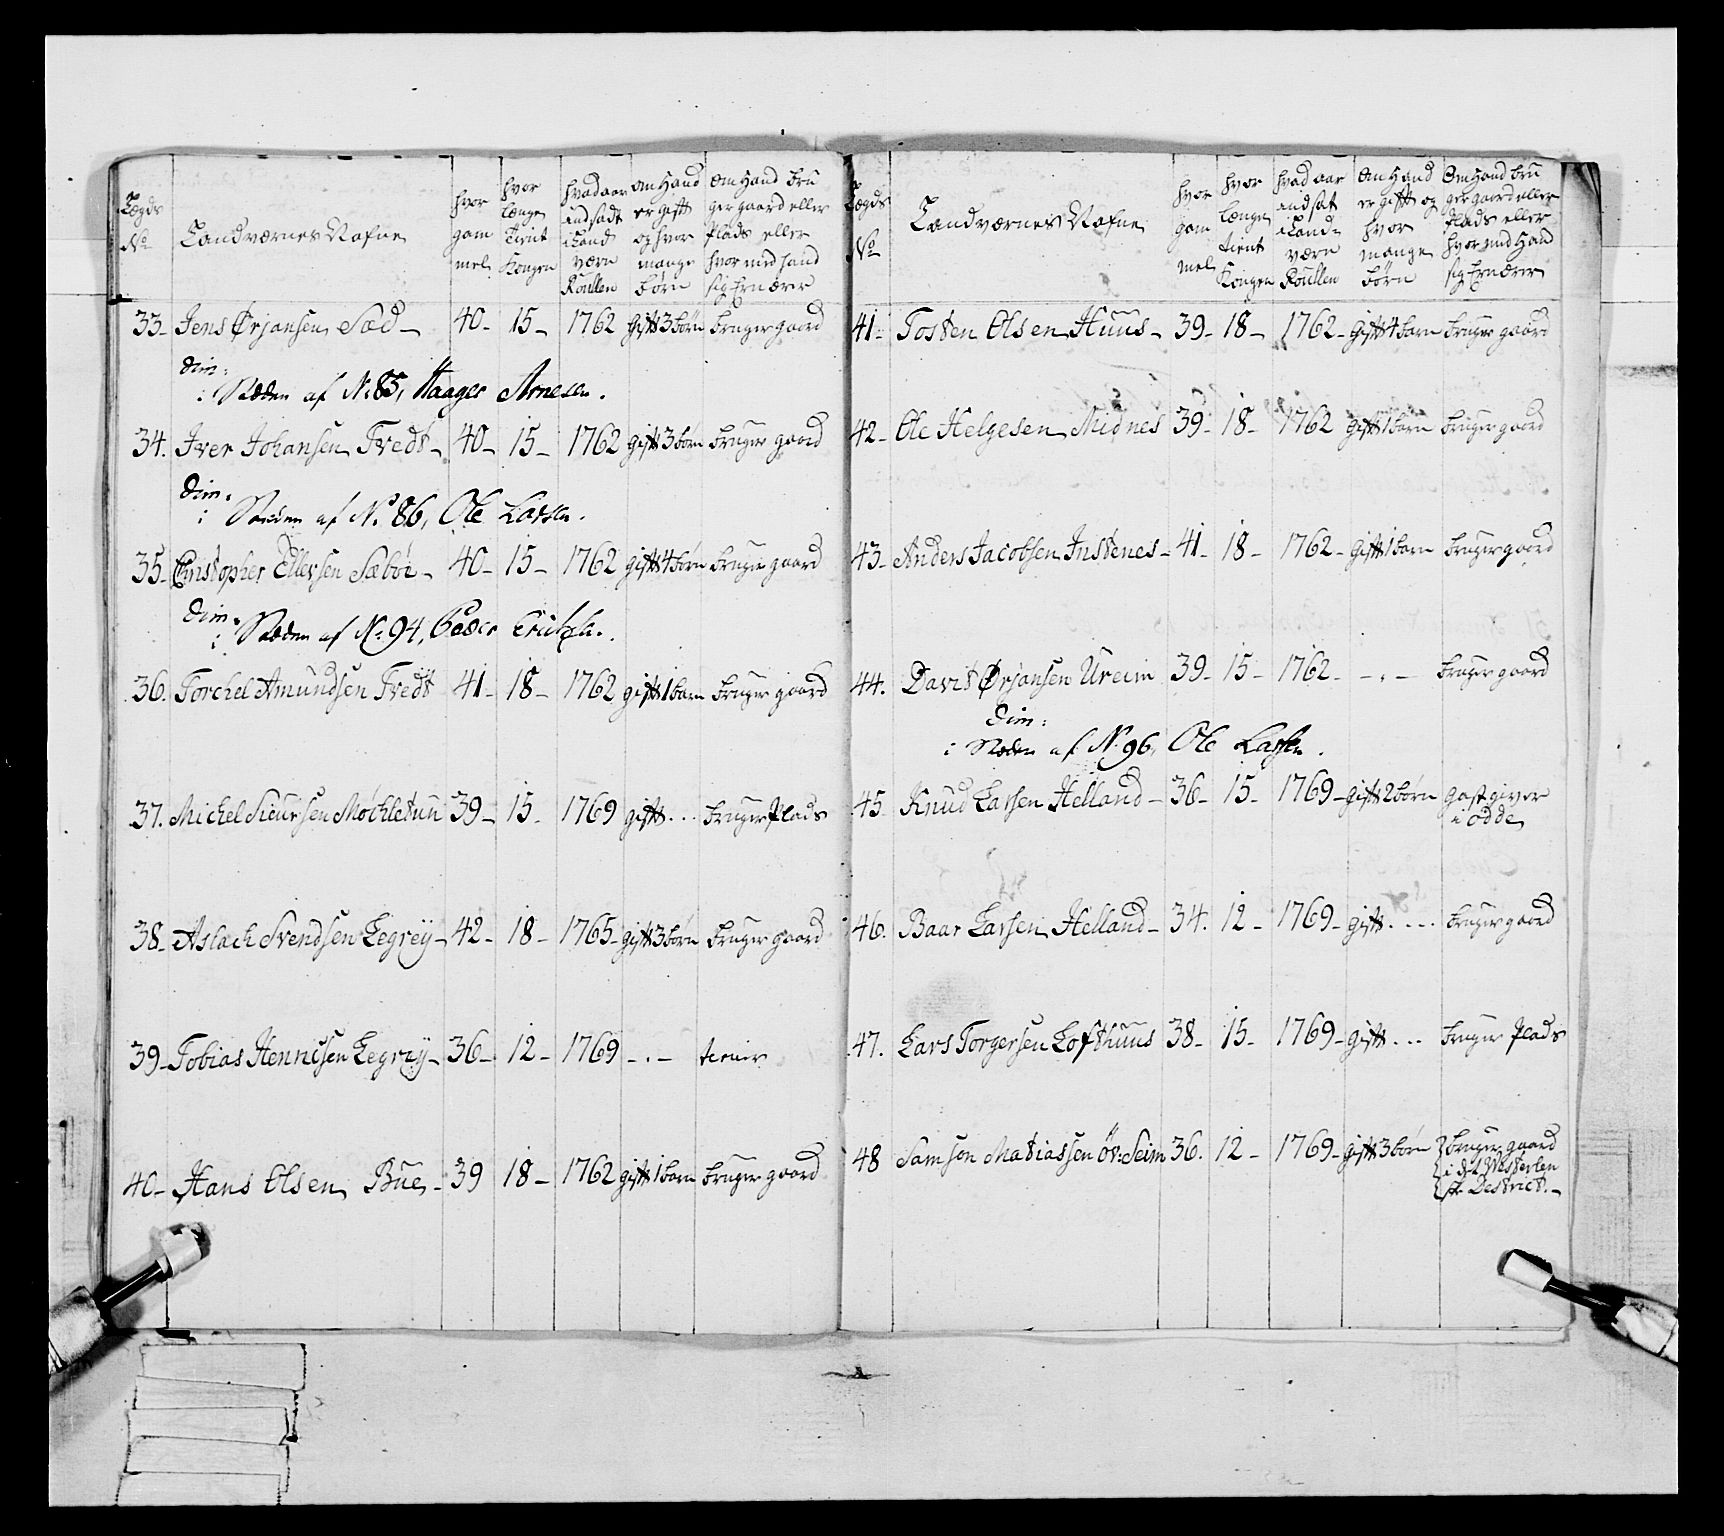 Lægds No
Landværnes Nafne
hvor gam mel
hvor længe tient Kongen
hvad aar indsadt i Land værn Roullen
om Hand er gift og hvor mange børn
om Hand bru ger gaard eller Plads eller hvor med hand sig Ernærer
33. Jens Ørjansen Sæd - 40 - 15 - 1762 gift 3 børn bruger gaard
dim:
i Steden af No 85, Haager Arnesen.
34. Iver Johansen Tvedt - 40 - 15 - 1762 gift 3 børn bruger gaard
dim:
i Steden af No 86, Ole Larsen.
35 - Christopher Ellevsen Sæbøe - 40 - 15 - 1762 gift 4 børn bruger gaard
dim:
i Steden af No 94, Peder
36. Torchel Amundsen Tvedt 41 - 18 - 1762 gift 1 barn bruger gaard
37. Michel Sieursen Møchletun 39 - 15 - 1769 gift ... bruger Plads
38 - Aslach Svendsen Legrey - 42 - 18 - 1765 - gift 3 børn bruger gaard
39 - Tobias Henricsen Legrey - 36 - 12 - 1769 - . - tiener
40 - Hans Olsen Bue - 39 18 - 1762 gift 1 barn bruger gaard
Lægds No
Landværnes Nafne
hvor gam mel
hvor længe tient Kongen
hvad aar indsat i Land værn Roullen
om Hand er gift og hvor mange børn
Om Hand bru ger gaard eller Plads eller hvor med Hand sig Ernærer
41 - Tosten Olsen Huus - 39 - 18 - 1762 - gift 4 børn bruger gaard
42 - Ole Helgesen Midnes 39 - 18 - 1762 gift 1 barn bruger gaard
43 - Anders Jacobsen Instenes - 41 - 18 - 1762 - gift 1 barn bruger gaard
44. David Ørjansen Ureim 39 - 15 - 1762 - - . - bruger gaard
dim:
i Steden af No 96, Ole Larsen.
45 Knud Larsen Helland - 36 - 15 - 1769 - gift 2 børn gastgiver
i Odde
46. Baar Larsen Helland - 34. 12 - 1769 - gift .... bruger gaard
47. Lars Torgersen Lofthuus 38 - 15 - 1769 - gift ... bruger Plads
48 Samson Matiassen Øv: Seim 36. 12 - 1769 - gift 3 børn bruger gaard
i det Westerlen
ske Destrict. -